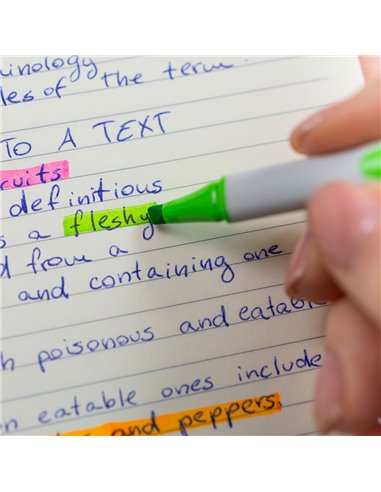 inology
les of the term.
TO A TEXT
cuits
definitious
s a fleshy
d from a
and containing one
h poisonous and eatable
n eatable ones include
and peppers.